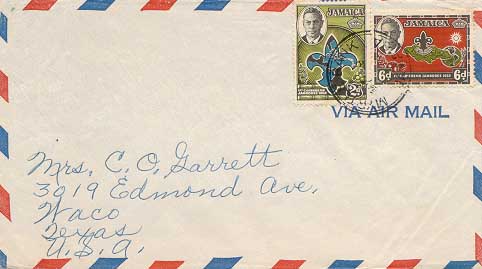 JAMAICA
JAMAICA
2d
6d 6d
VIA AIR MAIL
Mrs. C. O. Garrett
3919 Edmond Ave.
Waco
Texas
U.S.A.